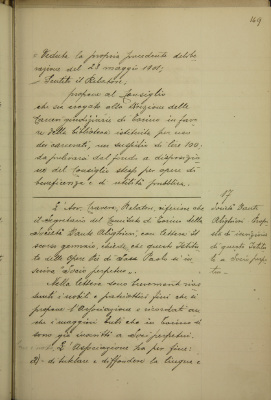 149
Vedute la propria precedente delibe
razione del 23 maggio
Sentito il Relatore,
propone al Consiglio
che sia erogato alla Direzione delle
Carceri giudiziarie di Torino in favo
re della biblioteca istituita per uso
dei carcerati, un sussidio di lire 100,
da prelevarsi dal fondo a disposizio
ne del Consiglio stesso per opere di
beneficenza e di utilità pubblica.
17
Società Dante
Alighieri
di iscrizione
di questo Istitu
to a Socio perpe
tuo.
Il Cav. Relatore, riferisce che
il Segretario del Comitato di Torino della
Società Dante Alighieri, con lettera
scorso gennaio, chiede che questo Istitu
to delle Opere Pie di San Paolo si in
scriva "Socio perpetuo".
Nella lettera sono
i nobili e patriottici fini che si
propone l'Associazione e ricordato an
che i maggiori che in Torino
sono già inscritti a Soci perpetui.
L'Associazione ha per fine:
di tutelare e diffondere la lingua e